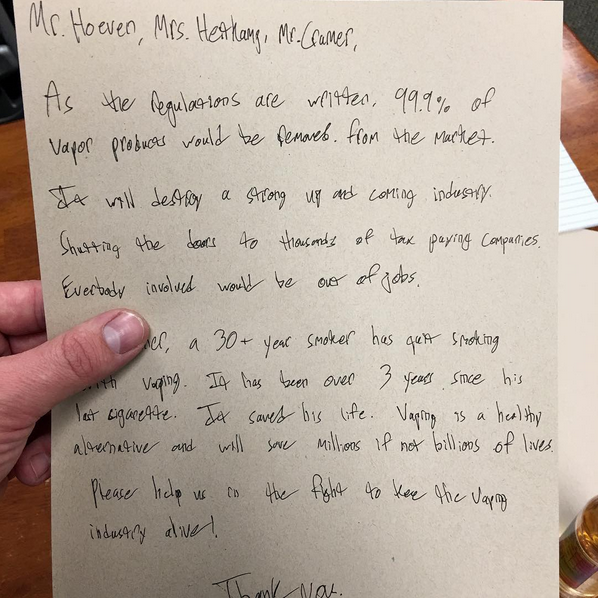 Mr. Hoeven, Mrs. Heitkamp, Mr. Cramer,
As the Regulations are written, 99.9% of
Vapor products would be Removed. from the market.
It will destroy a strong up and coming industry.
Shutting the doors to thousands of tax paying companies.
Everbody involved would be our of jobs.
her, a 30+ year smoker has quit smoking
with vaping. It has been over 3 years since his
last cigarette. It saved his life. Vaping is a healthy
alternative and will save millions if not billions of lives.
Please help us in the fight to kee the vaping
industry alive!
Thank you.